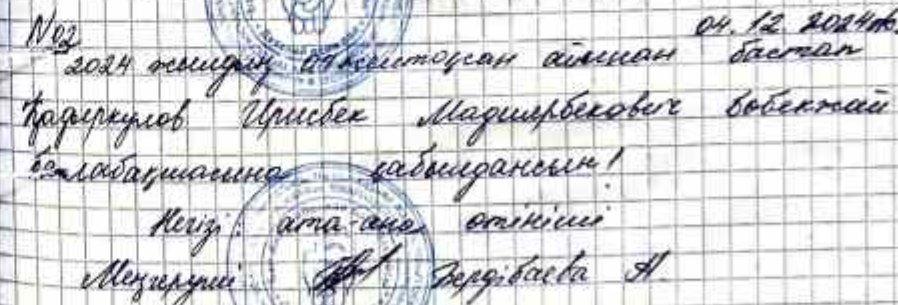 №02 04.12.2024ж.
2024 жылдың 04 желтоқсан айынан бастап
Қадыркулов Ирисбек Мадиярбекович бөбекжай
балабақшасына қабылдансын!
Негізі: ата-ана өтініші
Меңгеруші Бердібаева А.